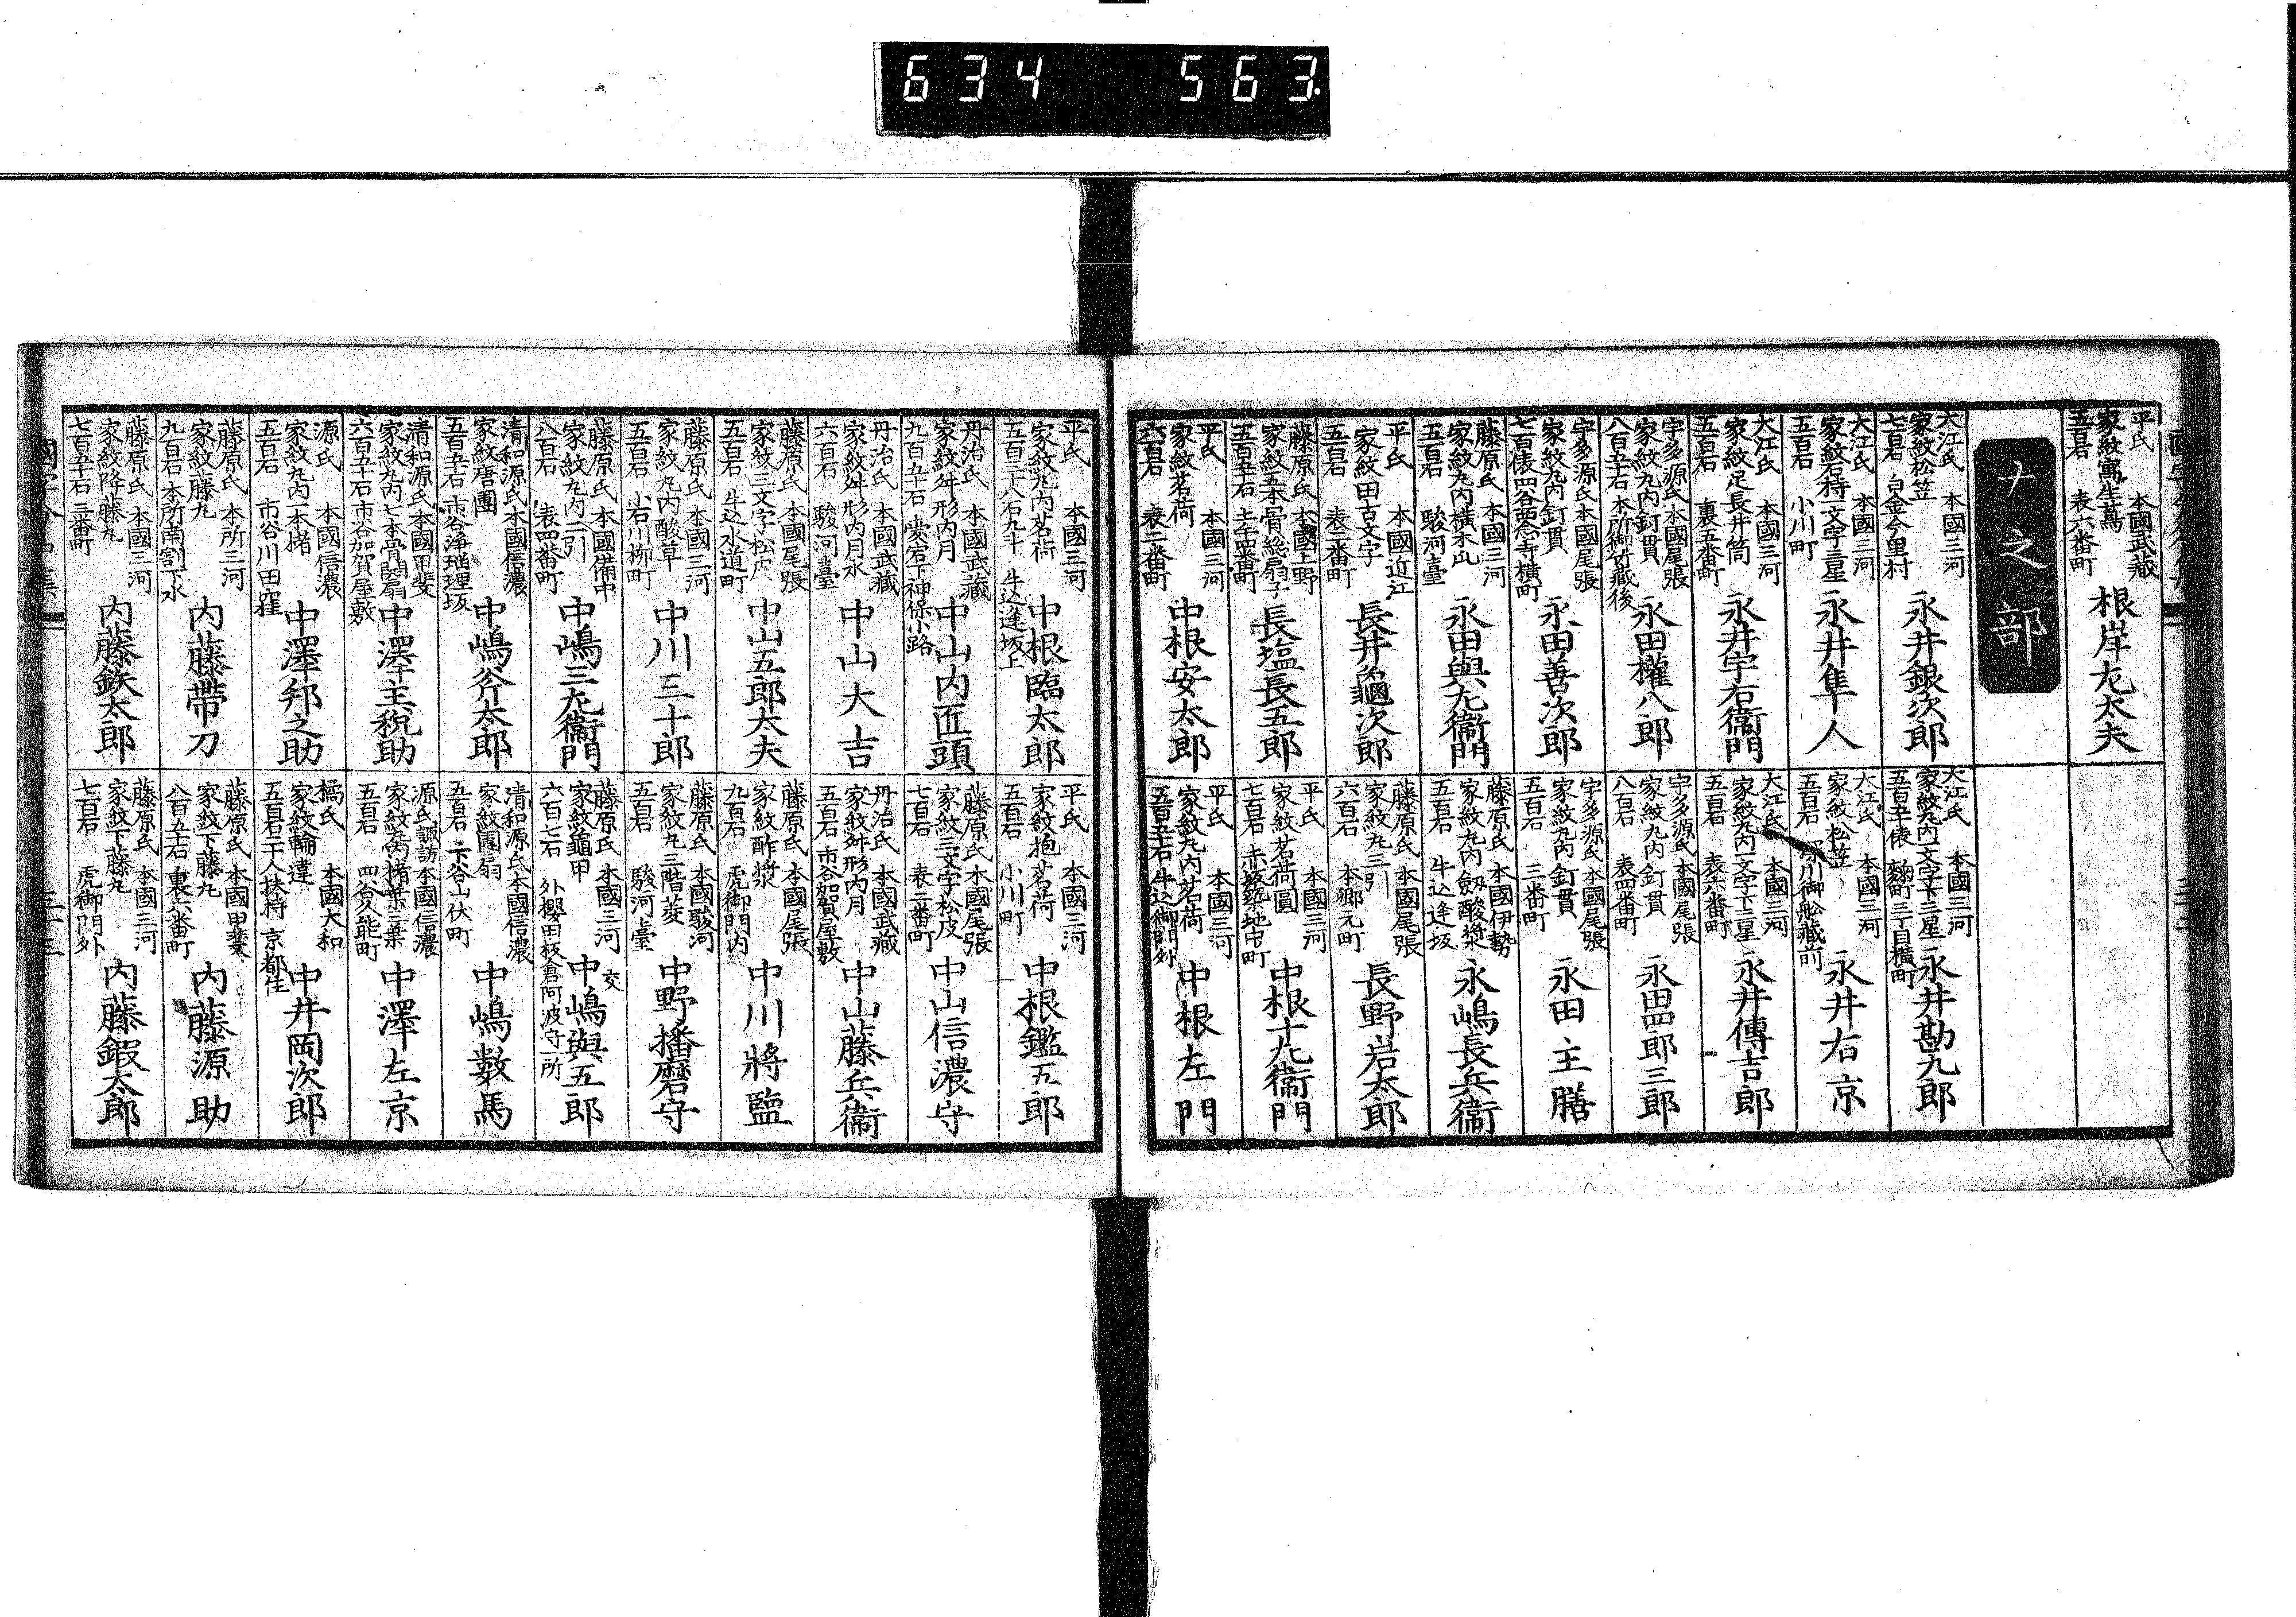 634 563
平氏 本國武藏
家紋寓生蔦
五百石 表六番町
根岸九大夫
ナ之部
大江氏 本國三河
家紋松笠
七百石 白金今里村
永井銀次郎
大江氏 本國三河
家紋石持一文字三星
五百石 小川町
永井隼人
大江氏 本國三河
家紋足長井筒
五百石 裏五番町
永井宇右衞門
宇多源氏 本國尾張
家紋丸内釘貫
八百五十石 本所御竹藏後
永田權八郎
宇多源氏 本國尾張
家紋丸内釘貫
七百俵 四谷西念寺横町
永田善次郎
藤原氏 本國三河
家紋丸内横木瓜
五百石 駿河臺
永田與左衞門
平氏 本國近江
家紋田古文字
五百石 表二番町
長井龜次郎
藤原氏 本國上野
家紋五本骨総扇子
長塩長五郎
平氏 本國三河
家紋茗荷
六百石 表二番町
中根安太郎
大江氏 本國三河
家紋丸内一文字下三星
五百五十俵 麹町三丁目横町
永井勘九郎
大江氏 本國三河
家紋松笠
五百石 深川御舩藏前
永井右京
大江氏 本國三河
家紋丸内一文字下三星
五百石 表六番町
永井傳吉郎
宇多源氏 本國尾張
家紋丸内釘貫
八百石 表四番町
永田四郎三郎
宇多源氏 本國尾張
家紋丸内釘貫
五百石 三番町
永田主膳
藤原氏 本國伊勢
家紋丸内劔酸漿
五百石 牛込逢坂
永嶋長兵衞
藤原氏 本國尾張
家紋丸三引
六百石 本郷元町
長野岩太郎
平氏 本國三河
家紋茗荷圓
七百石 赤坂築地中町
中根十左衞門
平氏 本國三河
家紋丸内茗荷
五百五十石 牛込御門外
中根左門
平氏 本國三河
家紋丸内茗荷
五百三十八石九斗 牛込逢坂上
中根臨太郎
丹治氏 本國武藏
家紋舛形内月
九百五十石 裏猿樂下神保小路
中山内匠頭
丹治氏 本國武藏
家紋舛形内月水
六百石 駿河臺
中山大吉
藤原氏 本國尾張
家紋三文字松皮
五百石 牛込水道町
中山五郎大夫
藤原氏 本國三河
家紋丸内酸草
五百石 小石川柳町
中川三十郎
藤原氏 本國備中
家紋丸内二引
八百石 表四番町
中嶋三左衞門
清和源氏 本國信濃
家紋唐團
五百五十石 市谷浄瑠理坂
中嶋斧太郎
清和源氏 本國甲斐
家紋丸内七本骨開扇
六百五十石 市谷加賀屋敷
中澤主税助
源氏 本國信濃
家紋丸内一本楮
五百石 市谷川田窪
中澤邦之助
藤原氏 本所三河
家紋藤丸
九百石 本所南割下水
内藤帶刀
藤原氏 本國三河
家紋降藤丸
七百五十石 三番町
内藤鉄太郎
平氏 本國三河
家紋抱茗荷
五百石 小川町
中根鑑五郎
藤原氏 本國尾張
家紋三文字松皮
七百石 表二番町
中山信濃守
丹治氏 本國武藏
家紋舛形内月
五百石 市谷加賀屋敷
中山藤兵衞
藤原氏 本國尾張
家紋酢漿
九百石 虎御門内
中川將監
藤原氏 本國駿河
家紋丸三階菱
五百石 駿河臺
中野播磨守
藤原氏 本國三河
家紋龜甲
六百七石 外櫻田板倉阿波守一所
交
中嶋與五郎
清和源氏 本國信濃
家紋團扇
五百石 下谷山伏町
中嶋數馬
源氏 諏訪 本國信濃
家紋丸内楮葉三葉
五百石 四谷久能町
中澤左京
橘氏 本國大和
家紋輪違
五百石二十人扶持 京都住
中井岡次郎
藤原氏 本國甲斐
家紋下藤丸
八百五十石 裏六番町
内藤源助
藤原氏 本國三河
家紋下藤丸
七百石 虎御門外
内藤鍜太郎